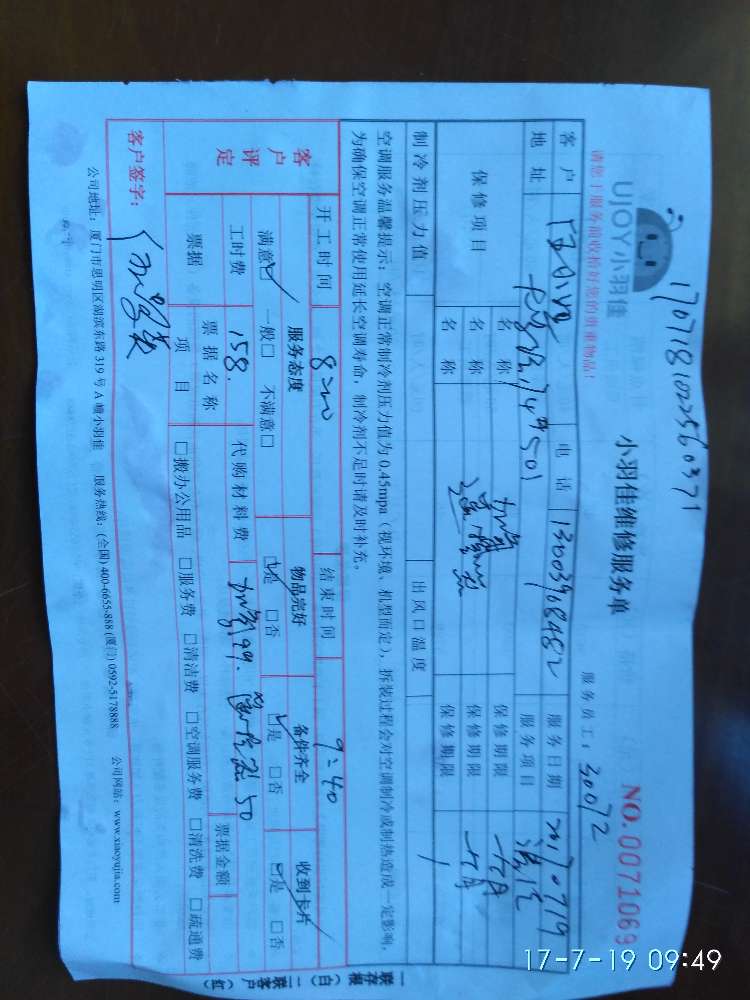 170718102256037​1
UJOY小羽佳
请您于服务前收拾好您的贵重物品!
小羽佳维修服务单
服务员工: 30072
NO.0071069
客户 电话 服务日期 20170719
地址 服务项目
保修项目 名称 保修期限
名称 保修期限
名称 保修期限
制冷剂压力值 出风口温度
空调服务温馨提示: 空调正常制冷剂压力值为0.45mpa(视环境、机型而定), 拆装过程会对空调制冷或制热造成一定影响,
为确保空调正常使用延长空调寿命, 制冷剂不足时请及时补充。
客户评定
开工时间 8:00 结束时间 9:40
服务态度 物品完好 备件齐全 收到卡片
满意☑ 一般□ 不满意□ ☑是 □否 ☑是 □否 ☑是 □否
工时费 158. 代购材料费
票据 票据名称 票据金额
项目 □搬办公用品 □服务费 □清洁费 □空调服务费 □清洗费 □疏通费
客户签字:
公司地址: 厦门市思明区湖滨东路319号A幢小羽佳 服务热线: (全国) 400-6655-888 (厦门) 0592-5178888 公司网站: www.xiaoyujia.com
一联存根(白) 二联客户(红)
17-7-19 09:49